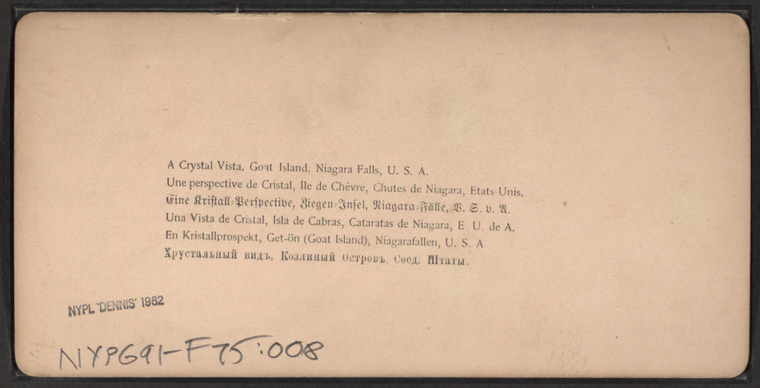 A Crystal Vista, Goat Island, Niagara Falls, U. S. A.
Une perspective de Cristal, Ile de Chêvre, Chutes de Niagara, Etats-Unis.
Eine Kristall-Perspective, Ziegen-Insel, Niagara-Fälle, V. S. v. A.
Una Vista de Cristal, Isla de Cabras, Cataratas de Niagara, E. U. de A.
En Kristallprospekt, Get-ön (Goat Island), Niagarafallen, U. S. A
Хрустальный видъ, Козлиный Островъ, Соед. Штаты.
NYPL 'DENNIS' 1982
NYPG91-F75:008